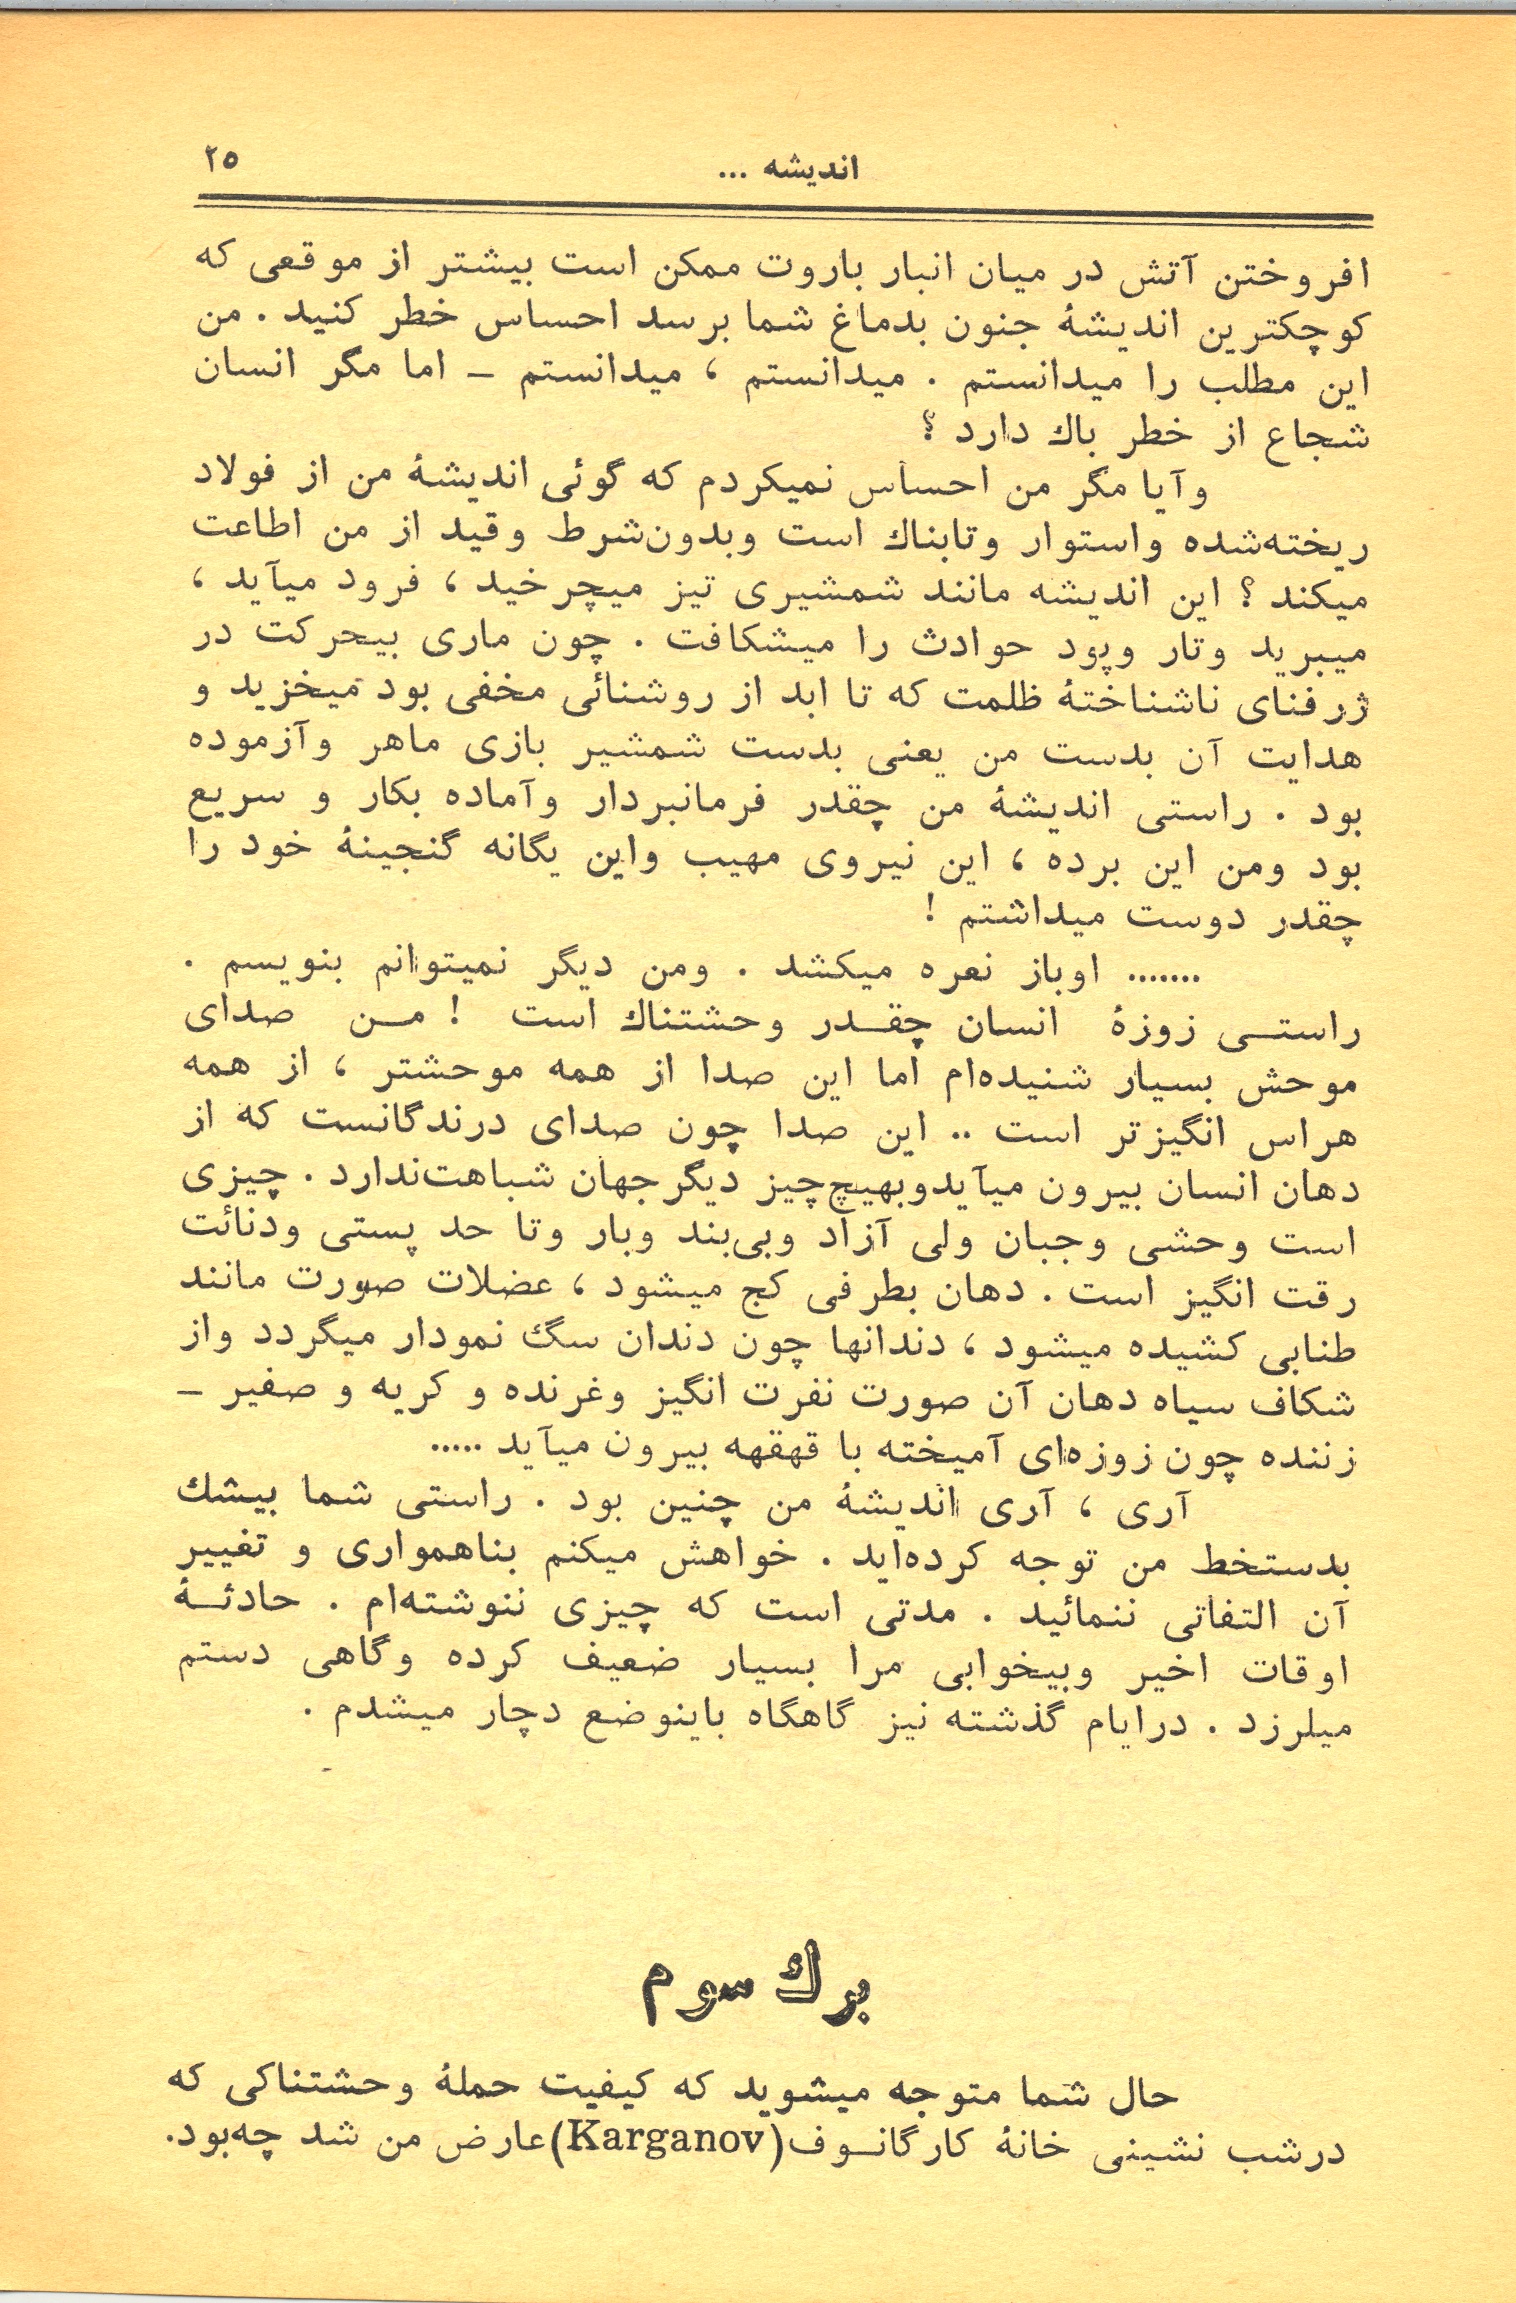 اندیشه ...
۲۵
افروختن آتش در میان انبار باروت ممکن است بیشتر از موقعی که
کوچکترین اندیشهٔ جنون بدماغ شما برسد احساس خطر کنید . من
این مطلب را میدانستم . میدانستم ، میدانستم – اما مگر انسان
شجاع از خطر باك دارد ؟
وآیا مگر من احساس نمیکردم که گوئی اندیشهٔ من از فولاد
ریخته‌شده واستوار وتابناك است وبدون‌شرط وقید از من اطاعت
میکند ؟ این اندیشه مانند شمشیری تیز میچرخید ، فرود میآید ،
میبرید وتار وپود حوادث را میشکافت . چون ماری بیحرکت در
ژرفنای ناشناختهٔ ظلمت که تا ابد از روشنائی مخفی بود میخزید و
هدایت آن بدست من یعنی بدست شمشیر بازی ماهر وآزموده
بود . راستی اندیشهٔ من چقدر فرمانبردار وآماده بکار و سریع
بود ومن این برده ، این نیروی مهیب واین یگانه گنجینهٔ خود را
چقدر دوست میداشتم !
....... اوباز نعره میکشد . ومن دیگر نمیتوانم بنویسم .
راستی زوزهٔ انسان چقدر وحشتناك است ! من صدای
موحش بسیار شنیده‌ام اما این صدا از همه موحشتر ، از همه
هراس انگیزتر است .. این صدا چون صدای درندگانست که از
دهان انسان بیرون میآیدوبهیچ‌چیز دیگرجهان شباهت‌ندارد . چیزی
است وحشی وجبان ولی آزاد وبی‌بند وبار وتا حد پستی ودنائت
رقت انگیز است . دهان بطرفی کج میشود ، عضلات صورت مانند
طنابی کشیده میشود ، دندانها چون دندان سگ نمودار میگردد واز
شکاف سیاه دهان آن صورت نفرت انگیز وغرنده و کریه و صفیر –
زننده چون زوزه‌ای آمیخته با قهقهه بیرون میآید .....
آری ، آری اندیشهٔ من چنین بود . راستی شما بیشك
بدستخط من توجه کرده‌اید . خواهش میکنم بناهمواری و تغییر
آن التفاتی ننمائید . مدتی است که چیزی ننوشته‌ام . حادثهٔ
اوقات اخیر وبیخوابی مرا بسیار ضعیف کرده وگاهی دستم
میلرزد . درایام گذشته نیز گاهگاه باینوضع دچار میشدم .
برك سوم
حال شما متوجه میشوید که کیفیت حملهٔ وحشتناکی که
درشب نشینی خانهٔ کارگانوف(Karganov)عارض من شد چه‌بود.